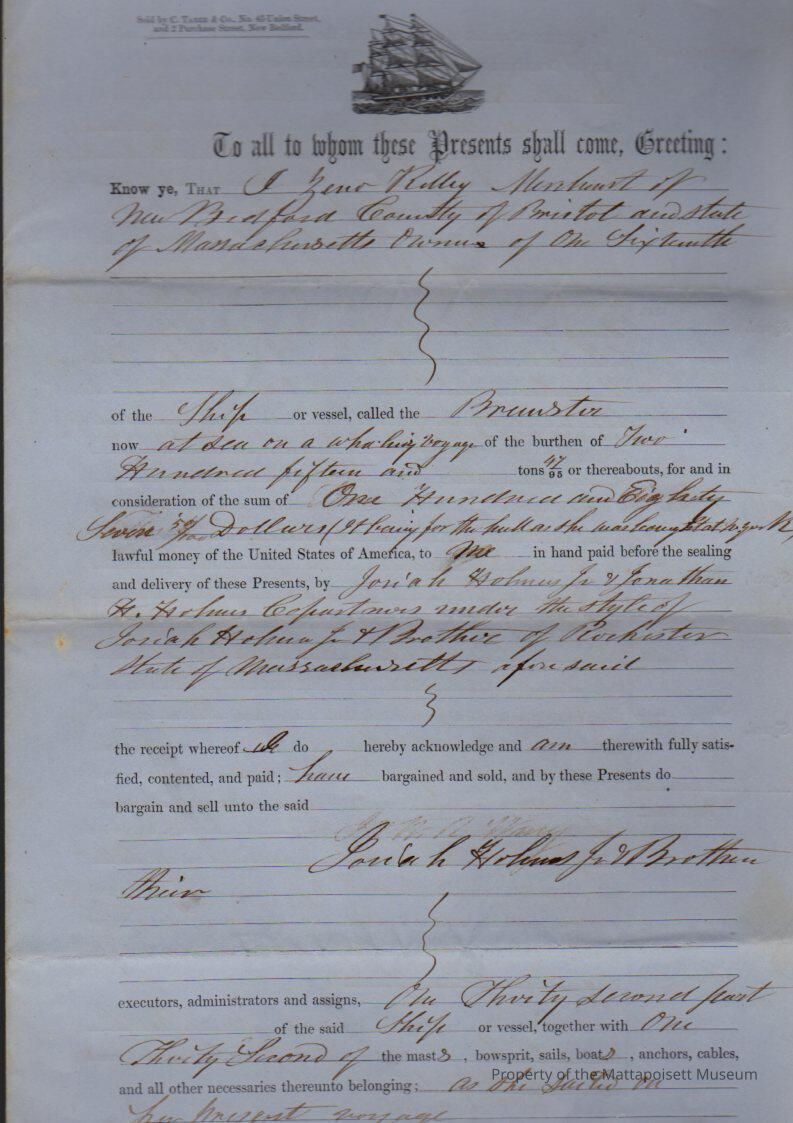 Sold by C. Taber & Co., No. 45 Union Street,
and 2 Purchase Street, New Bedford.
To all to whom these Presents shall come, Greeting:
Know ye, That I Zeno Kelley Merchant of
New Bedford County of Bristol and state
of Massachusetts Owner of One Sixteenth
of the Ship or vessel, called the Brewster
now at sea on a whaling voyage of the burthen of Two
Hundred fifteen and tons 47/95 or thereabouts, for and in
consideration of the sum of One Hundred and Eighty
Seven 50/100 Dollars (It being for the hull as she was
lawful money of the United States of America, to me in hand paid before the sealing
and delivery of these Presents, by Josiah Holmes Jr & Jonathan
H. Holmes Copartners under the style of
Josiah Holmes Jr & Brother of Rochester
State of Massachusetts aforesaid
the receipt whereof I do hereby acknowledge and am therewith fully satis-
fied, contented, and paid; have bargained and sold, and by these Presents do
bargain and sell unto the said
Josiah Holmes Jr & Brother
their
executors, administrators and assigns, One Thirty second part
of the said Ship or vessel, together with One
Thirty Second of the masts, bowsprit, sails, boats, anchors, cables,
and all other necessaries thereunto belonging; as she sailed on
her present voyage
Property of the Mattapoisett Museum